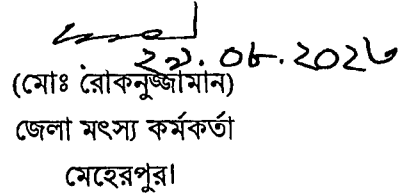 ২৯.০৮.২০২৩
(মোঃ রোকনুজ্জামান)
জেলা মৎস্য কর্মকর্তা
মেহেরপুর।